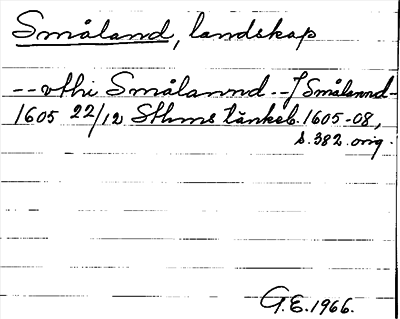 Småland, landskap
-- vthi Smålannd -- / Smålannd -
1605 22/12 Sthms tänkeb. 1605-08,
s. 382. orig.
G.E. 1966.